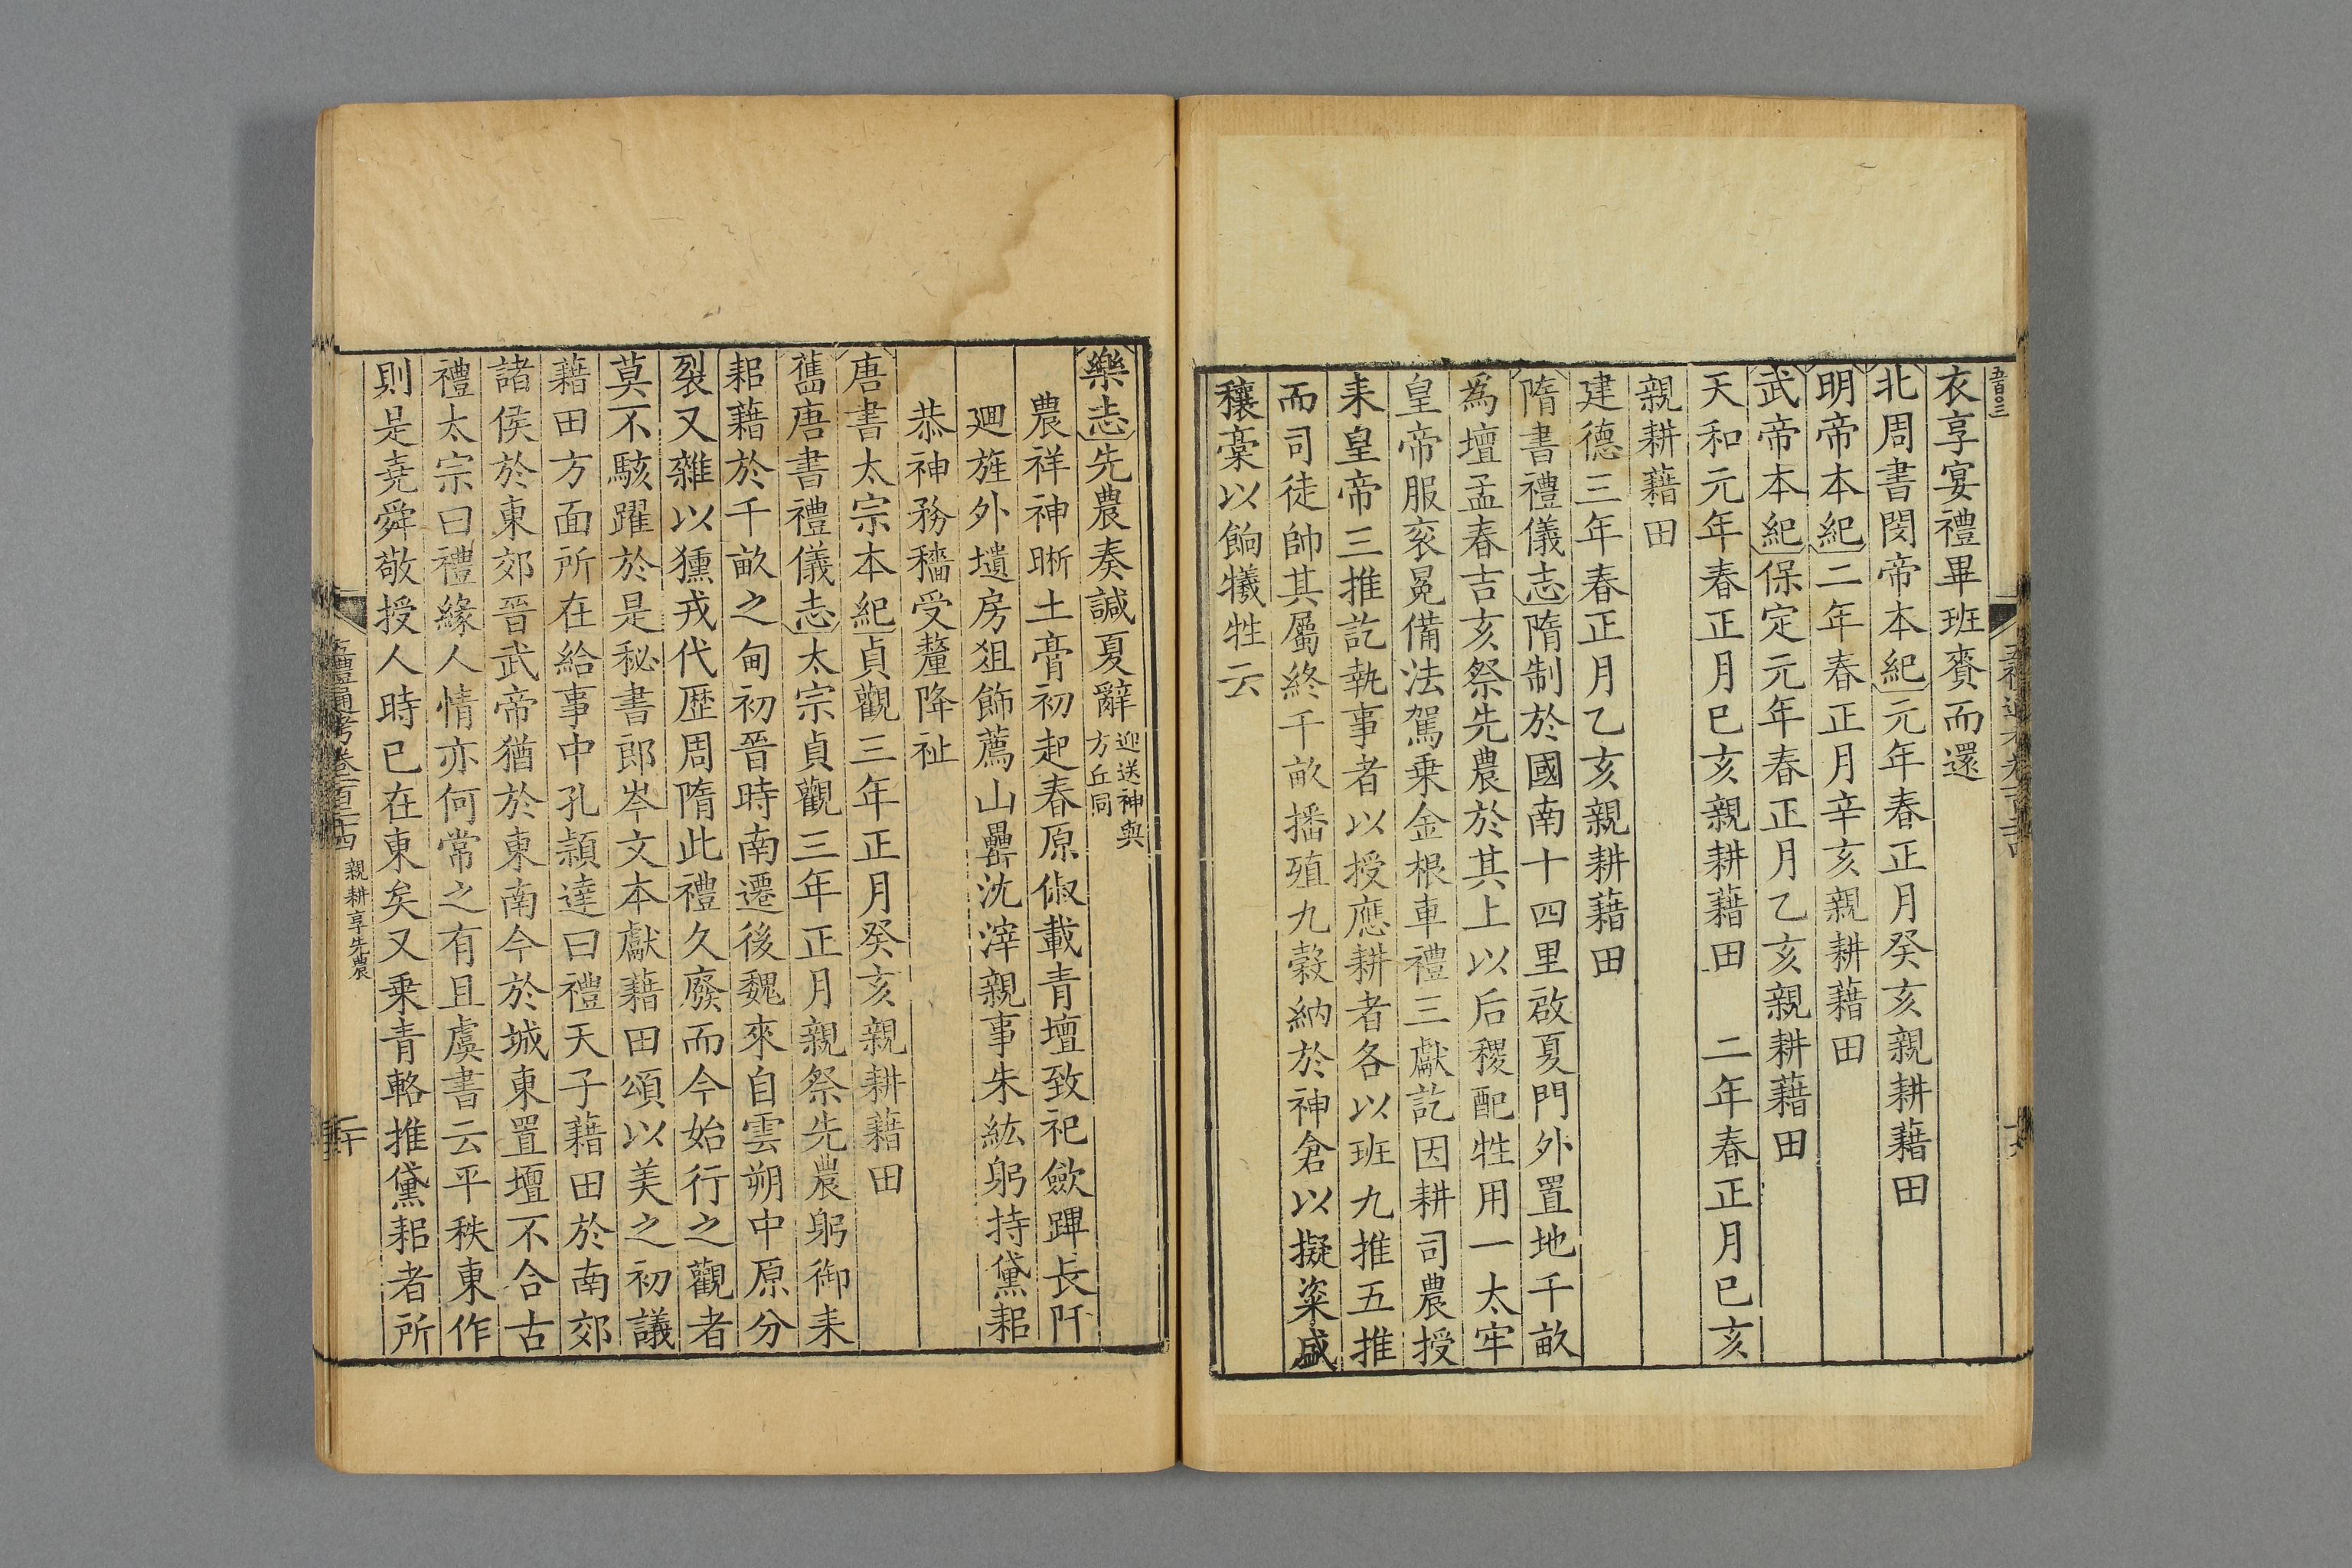 衣享宴禮畢班賚而還
北周書閔帝本紀元年春正月癸亥親耕藉田
明帝本紀二年春正月辛亥親耕藉田
武帝本紀保定元年春正月乙亥親耕藉田
天和元年春正月已亥親耕藉田　二年春正月已亥
親耕藉田
建德三年春正月乙亥親耕藉田
隋書禮儀志隋制於國南十四里啟夏門外置地千畝
為壇孟春吉亥祭先農於其上以后稷配牲用一太牢
皇帝服袞冕備法駕乘金根車禮三獻訖因耕司農授
耒皇帝三推訖執事者以授應耕者各以班九推五推
而司徒帥其屬終千畝播殖九穀納於神倉以擬粢盛
穰稾以餉犧牲云
樂志先農奏諴夏辭迎送神與方丘同
農祥神晣土膏初起春原俶載青壇致祀歛蹕長阡
廻旌外壝房俎飾薦山罍沈滓親事朱紘躬持黛耜
恭神務穡受釐降祉
唐書太宗本紀貞觀三年正月癸亥親耕藉田
舊唐書禮儀志太宗貞觀三年正月親祭先農躬御耒
耜藉於千畝之甸初晉時南遷後魏來自雲朔中原分
裂又雜以獯戎代歷周隋此禮久廢而今始行之觀者
莫不駭躍於是秘書郎岑文本獻藉田頌以美之初議
藉田方面所在給事中孔穎達曰禮天子藉田於南郊
諸侯於東郊晉武帝猶於東南今於城東置壇不合古
禮太宗曰禮緣人情亦何常之有且虞書云平秩東作
則是堯舜敬授人時已在東矣又乘青輅推黛耜者所
五禮通考卷一百二十四 親耕享先農
二十